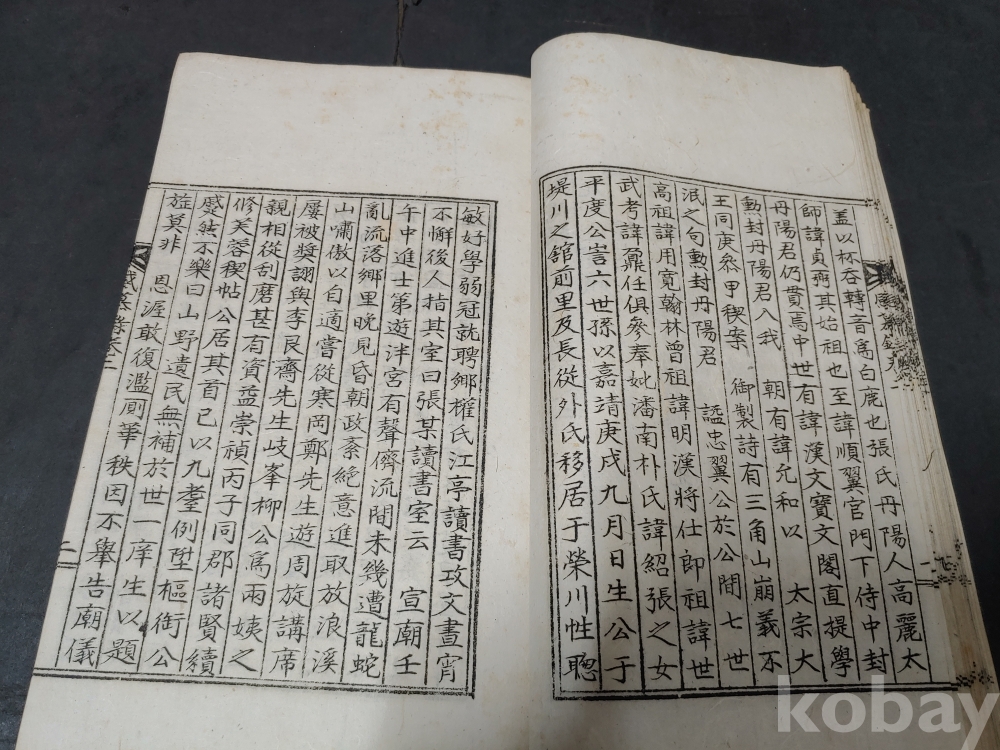 盖以杯呑轉音爲白鹿也張氏丹陽人高麗太
師諱貞弼其始祖也至諱順翼官門下侍中封
丹陽君仍貫焉中世有諱漢文寶文閣直提學
勲封丹陽君入我 朝有諱允和以 太宗大
王同庚叅甲稧案 御製詩有三角山崩義不
泯之句勲封丹陽君 謚忠翼公於公間七世
高祖諱用寛翰林曾祖諱明漢將仕郎祖諱世
武考諱鼐任俱參奉妣潘南朴氏諱紹張之女
平度公訔六世孫以嘉靖庚戌九月日生公于
堤川之舘前里及長從外氏移居于榮川性聰
敏好學弱冠就聘鄉權氏江亭讀書攻文晝宵
不懈後人指其室曰張某讀書室云 宣廟壬
午中進士第遊泮宮有聲儕流間未幾遭龍蛇
亂流落鄉里晩見昏朝政紊絶意進取放浪溪
山嘯傲以自適嘗從寒岡鄭先生遊周旋講席
屢被奬詡與李艮齋先生岐峯柳公爲兩姨之
親相從刮磨甚有資益崇禎丙子同郡諸賢續
修芙蓉稧帖公居其首已以九耋例陞樞衘公
蹙然不樂曰山野遺民無補於世一庠生以題
旌莫非 恩渥敢復濫厠華秩因不舉告廟儀
二
kobay